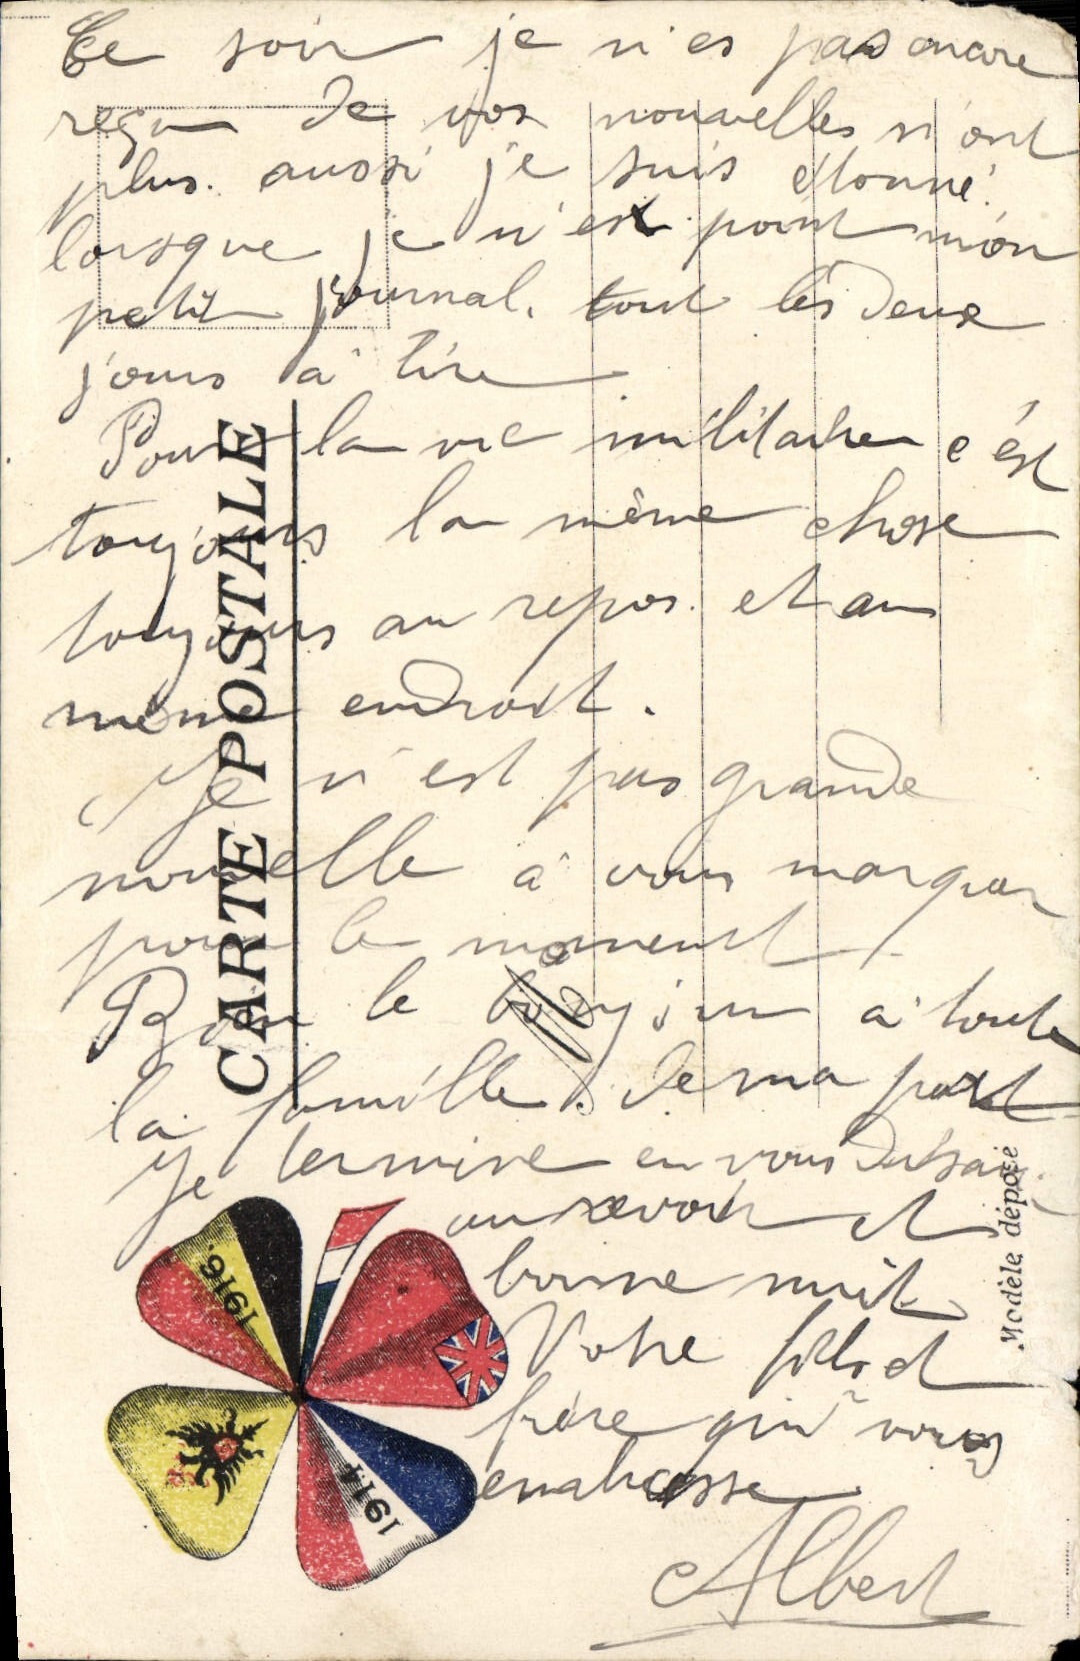 Ce soir je n'es pas encore
reçu de vos nouvelles n'ont
plus. aussi je suis étonné
lorsque je n'est point mon
petit journal. tout les deux
jours a lire
Pour la vie militaire c'est
toujours la même chose
toujours au repos. et au
même endroit.
Je n'est pas grande
nouvelle à vous marquer
pour le moment.
Bien le bonjour a toute
la famille. de ma part
Je termine en vous disant
au revoir et
bonne nuit
Votre fils et
frère qui vous
embrasse
Albert
CARTE POSTALE
Modèle déposé
1916.
1914